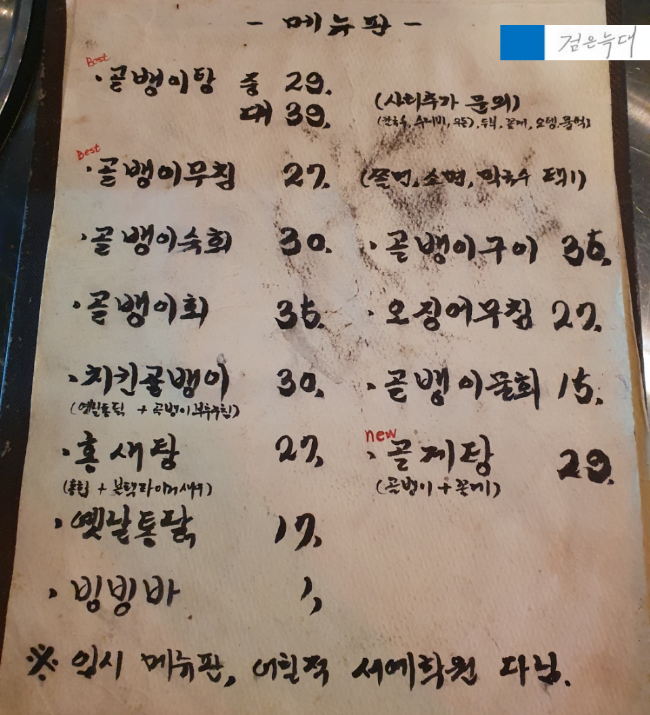 - 메뉴판 -
검은늑대
Best
·골뱅이탕 중 29.
대 39.
(사리추가 문의)
(칼국수, 수제비, 우동), 두부, 꽃게, 오뎅, 물떡)
Best
·골뱅이무침 27.
(쫄면, 소면, 막국수 택1)
·골뱅이숙회 30.
·골뱅이구이 35.
·골뱅이회 35.
·오징어무침 27.
·치킨골뱅이 30.
(옛날통닭 + 골뱅이무침)
·골뱅이물회 15.
·홍새탕 27.
(홍합 + 블랙타이거새우)
new
·골게탕 29.
(골뱅이 + 꽃게)
·옛날통닭 17.
·빙빙바 1.
※ 임시 메뉴판, 어릴적 서예학원 다님.